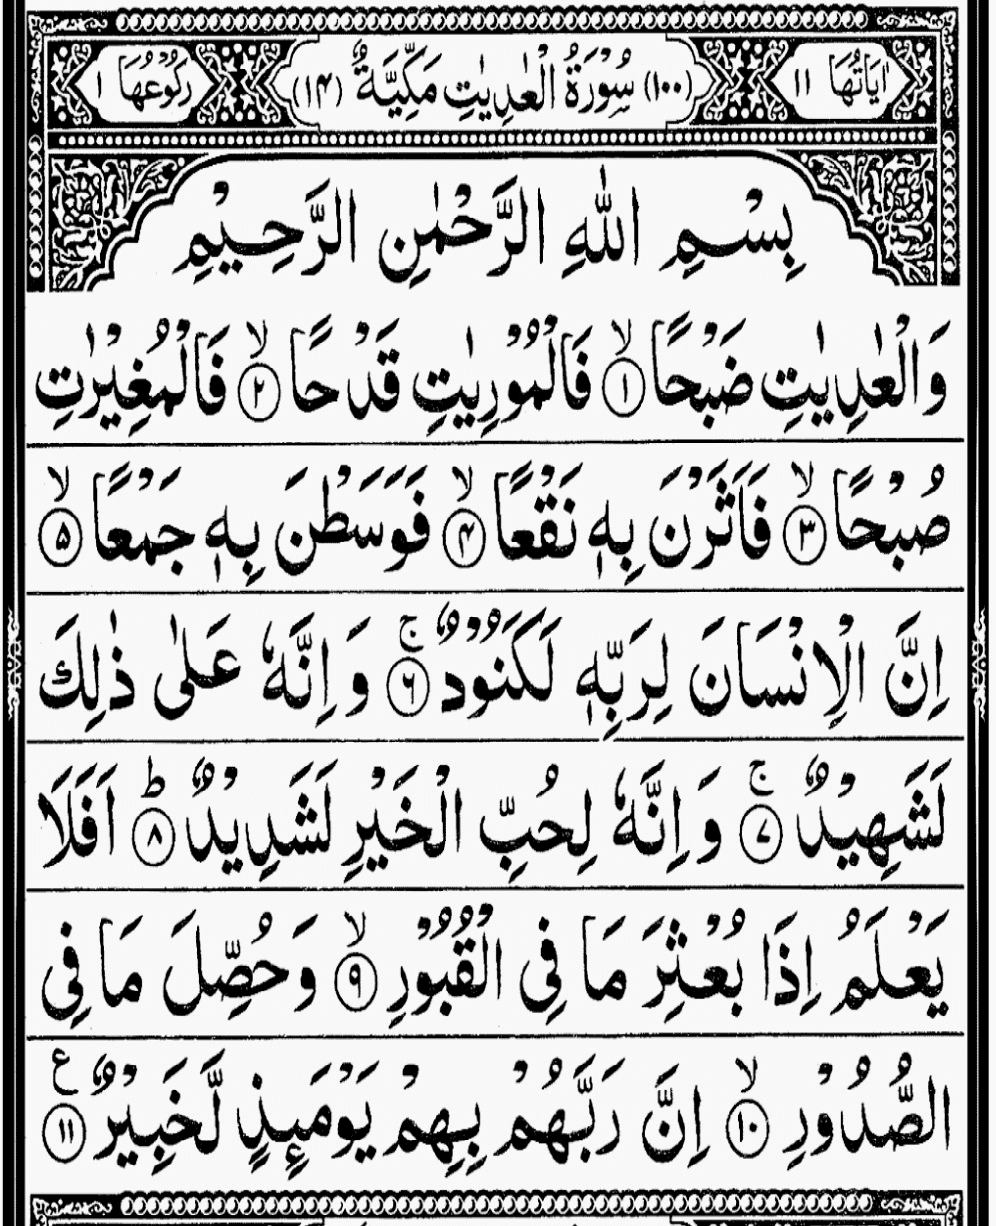 اٰیَاتُهَا ١١ (١٠٠) سُوْرَةُ الْعٰدِیٰتِ مَكِّیَّةٌ (١۴) رُكُوْعُهَا ١
بِسْمِ اللّٰهِ الرَّحْمٰنِ الرَّحِیْمِ
وَالْعٰدِیٰتِ ضَبْحًا ۙ﴿١﴾ فَالْمُوْرِیٰتِ قَدْحًا ۙ﴿٢﴾ فَالْمُغِیْرٰتِ
صُبْحًا ۙ﴿٣﴾ فَاَثَرْنَ بِهٖ نَقْعًا ۙ﴿۴﴾ فَوَسَطْنَ بِهٖ جَمْعًا ۙ﴿۵﴾
اِنَّ الْاِنْسَانَ لِرَبِّهٖ لَكَنُوْدٌ ۚ﴿۶﴾ وَ اِنَّهٗ عَلٰی ذٰلِكَ
لَشَهِیْدٌ ۚ﴿٧﴾ وَ اِنَّهٗ لِحُبِّ الْخَیْرِ لَشَدِیْدٌ ؕ﴿٨﴾ اَفَلَا
یَعْلَمُ اِذَا بُعْثِرَ مَا فِی الْقُبُوْرِ ۙ﴿٩﴾ وَ حُصِّلَ مَا فِی
الصُّدُوْرِ ۙ﴿١٠﴾ اِنَّ رَبَّهُمْ بِهِمْ یَوْمَىِٕذٍ لَّخَبِیْرٌ ﴿١١﴾ ع